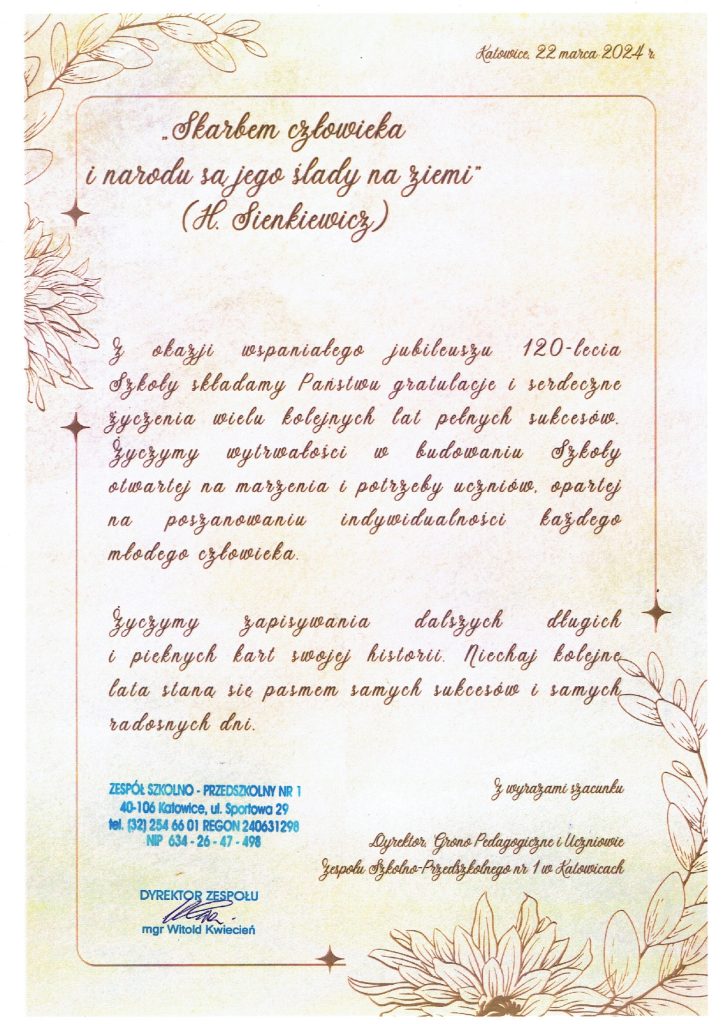 Katowice, 22 marca 2024 r.
„Skarbem człowieka
i narodu są jego ślady na ziemi”
(H. Sienkiewicz)
Z okazji wspaniałego jubileuszu 120-lecia
Szkoły składamy Państwu gratulacje i serdeczne
życzenia wielu kolejnych lat pełnych sukcesów.
Życzymy wytrwałości w budowaniu Szkoły
otwartej na marzenia i potrzeby uczniów, opartej
na poszanowaniu indywidualności każdego
młodego człowieka.
Życzymy zapisywania dalszych długich
i pięknych kart swojej historii. Niechaj kolejne
lata staną się pasmem samych sukcesów i samych
radosnych dni.
Z wyrazami szacunku
Dyrektor, Grono Pedagogiczne i Uczniowie
Zespołu Szkolno-Przedszkolnego nr 1 w Katowicach
ZESPÓŁ SZKOLNO - PRZEDSZKOLNY NR 1
40-106 Katowice, ul. Sportowa 29
tel. (32) 254 66 01 REGON 240631298
NIP 634 - 26 - 47 - 498
DYREKTOR ZESPOŁU
mgr Witold Kwiecień